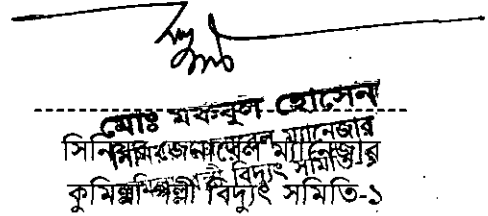 মোঃ মকবুল হোসেন
সিনিয়র জেনারেল ম্যানেজার
কুমিল্লা পল্লী বিদ্যুৎ সমিতি-১